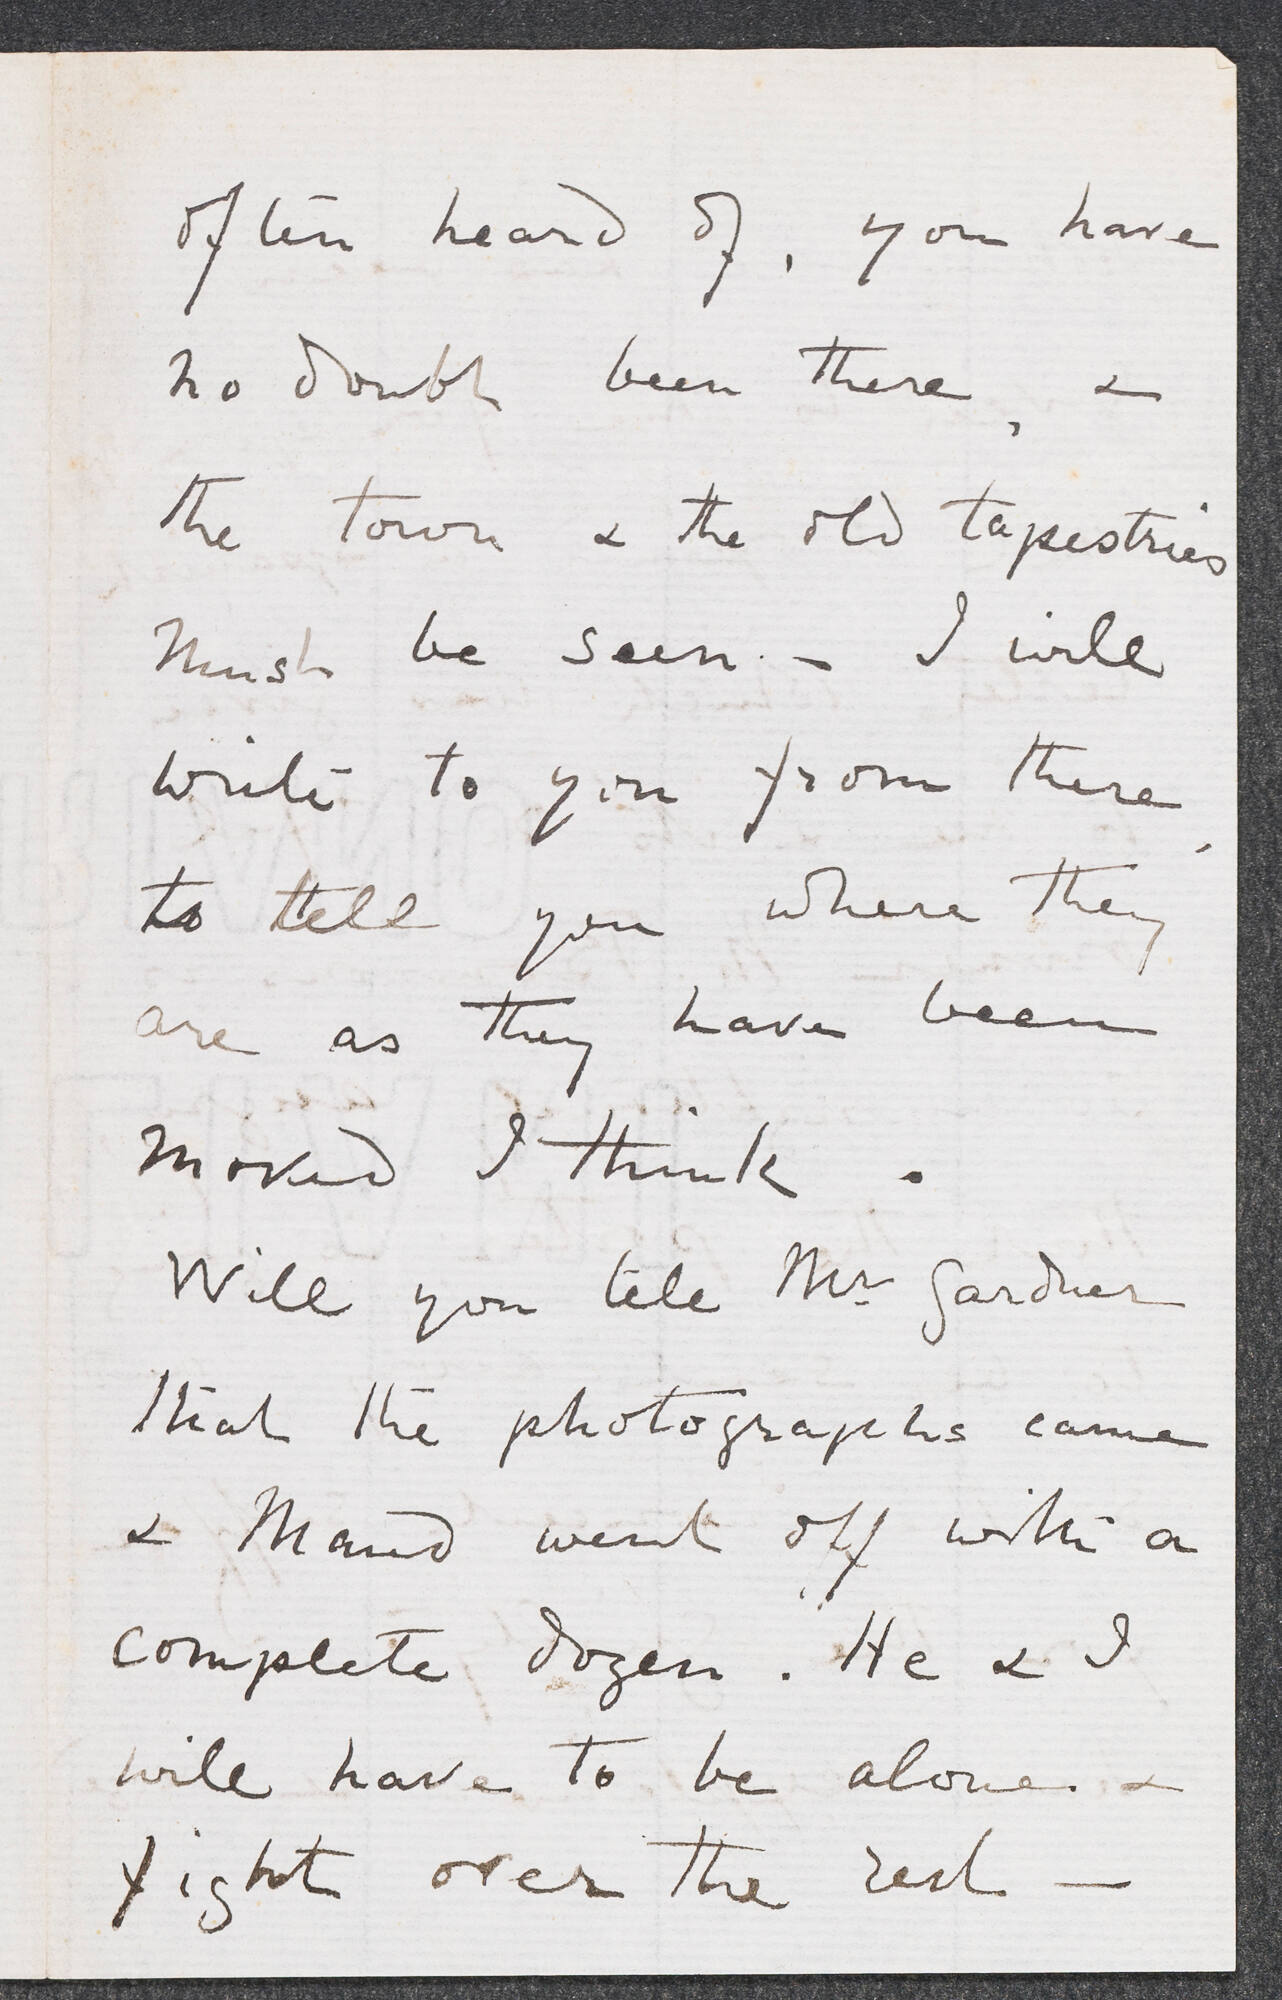 often heard of, you have
no doubt been there, &
the town & the old tapestries
must be seen. - I will
write to you from there,
to tell you where they
are as they have been
moved I think .
Will you tell Mr Gardner
that the photographs came
& Maud went off with a
complete dozen. He & I
will have to be alone. &
fight over the rest —